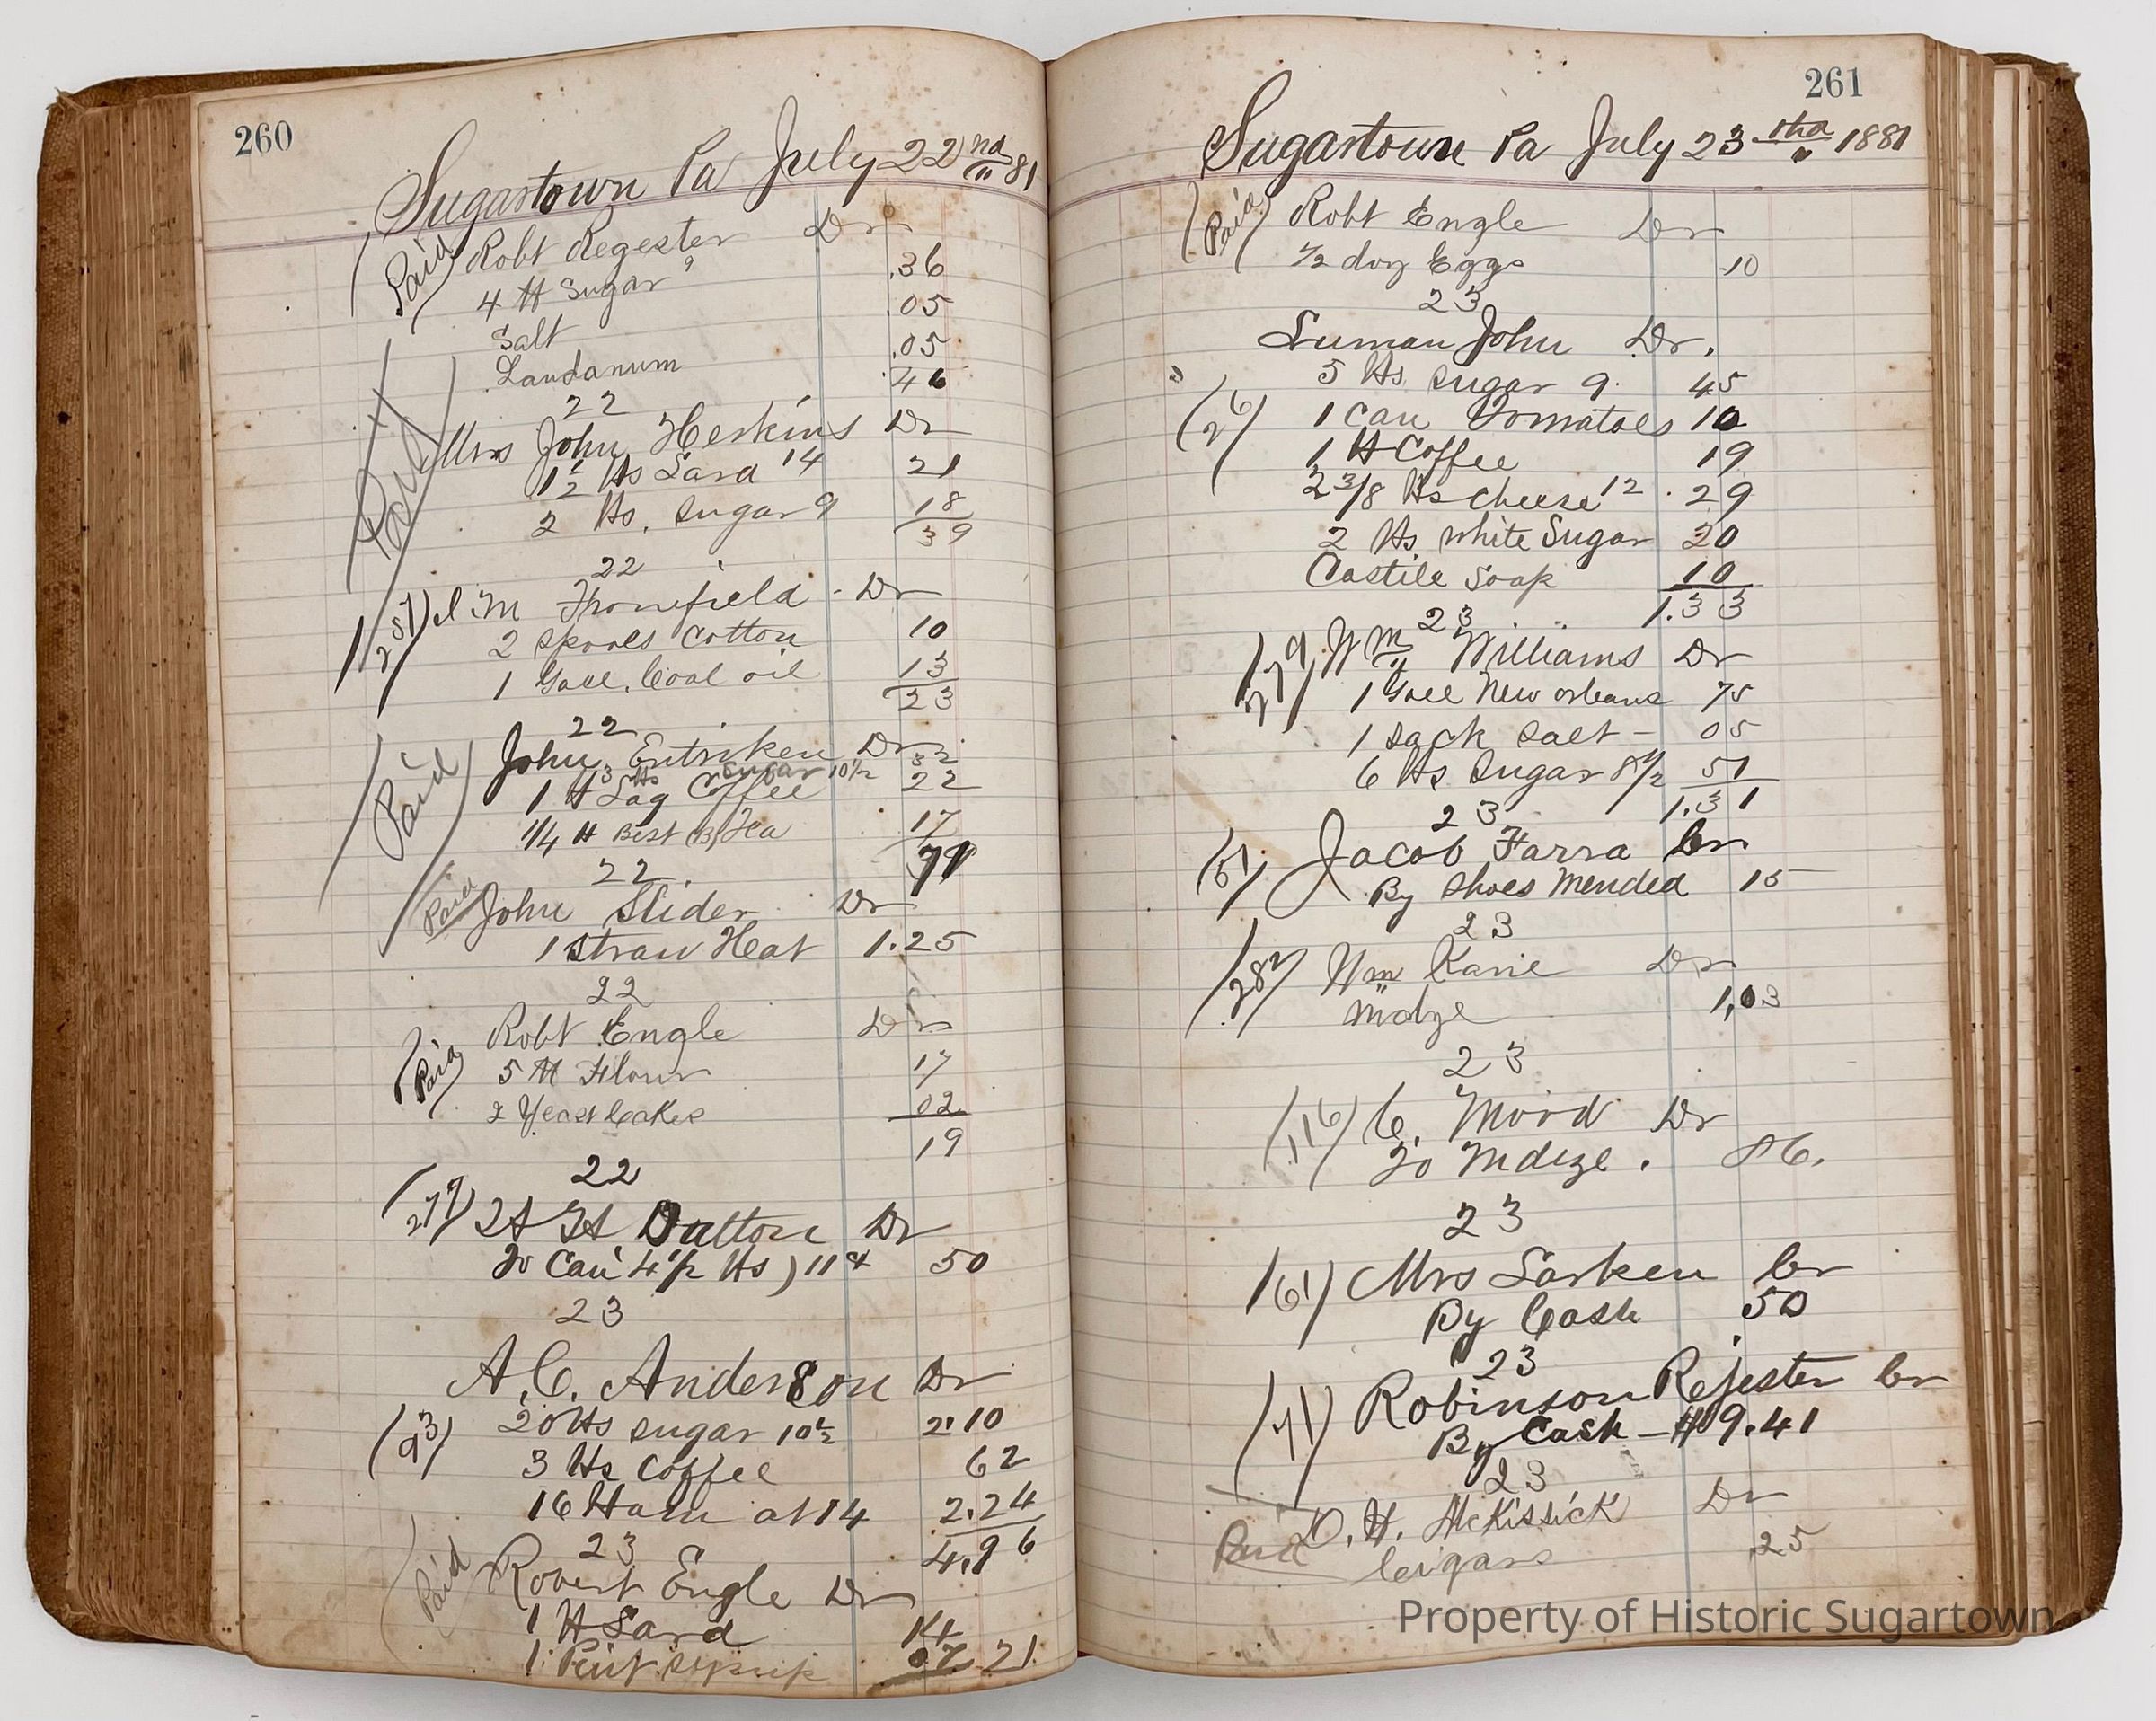 260
Sugartown Pa July 22nd 81
Paid
Robt Regester Dr
4 ℔ Sugar 9 .36
Salt .05
Laudanum .05
46
22
Paid
Mrs John Herkins Dr
1 1/2 ℔s Lard 14 21
2 ℔s. Sugar 9 18
39
22
257
J. M Fronefield - Dr
2 Spools Cotton 10
1 Gall. Coal oil 13
23
22
Paid
John Entriken Dr
3 ℔s Sugar 10 1/2 32
1 ℔ Lag Coffee 22
1/4 ℔ Best (B) Tea 17
71
22.
Paid
John Slider Dr
1 Straw Heat 1.25
22
Paid
Robt Engle Dr
5 ℔ Flour 17
2 Yeast Cakes 02
19
22
(277) Dutton Dr
To Can 4 1/2 ℔s) 11 ¢ 50
23
A. C. Anderson Dr
(93) 20 ℔s Sugar 10 1/2 2.10
3 ℔s Coffee 62
16 Ham at 14 2.24
4.96
23
Paid
Robert Engle Dr
1 ℔ Lard 14
1 Pint Syrup 07 21
261
Sugartown Pa July 23 1881
Paid
Robt Engle Dr
1/2 doz Eggs .10
23
Luman John Dr.
5 ℔s Sugar 9. 45
(26) 1 Can Tomatoes 10
1 ℔ Coffee 19
2 3/8 ℔s Cheese 12 . 29
2 ℔s white Sugar 20
Castile Soap 10
1.33
23
(279) Wm Williams Dr
1 Gall New Orleans 75
1 Sack Salt - 05
6 ℔s Sugar 8 1/2 51
1.31
23
(51) Jacob Farra Cr
By Shoes Mended 15
23
(287) Wm Kane Dr
Mdze 1.03
23
(116) C. Mood Dr
To Mdze. 86.
23
(61) Mrs Larken Cr
By Cash 50
23
(71) Robinson Rejester Cr
By Cash - $9.41
23
Paid
D. H. McKissick Dr
Cigars .25
Property of Historic Sugartown